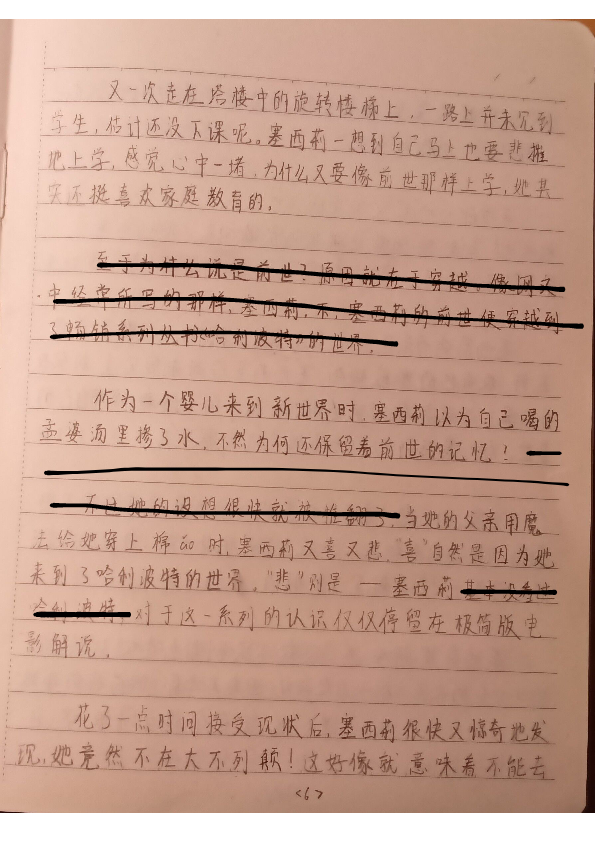 又一次走在塔楼中的旋转楼梯上，一路上并未见到
学生，估计还没下课呢。塞西莉一想到自己马上也要悲催
地上学，感觉心中一堵，为什么又要像前世那样上学，她其
实不挺喜欢家庭教育的。
至于为什么说是前世？原因就在于穿越，像网文
中经常所写的那样，塞西莉，不，塞西莉的前世便穿越到
了畅销系列丛书《哈利波特》的世界。
作为一个婴儿来到新世界时，塞西莉以为自己喝的
孟婆汤里掺了水，不然为何还保留着前世的记忆！
不过她的设想很快就被推翻了，当她的父亲用魔
去给她穿上棉衣时，塞西莉又喜又悲，"喜"自然是因为她
来到了哈利波特的世界，"悲"则是——塞西莉基本没看过
哈利波特，对于这一系列的认识仅仅停留在极简版电
影解说。
花了一点时间接受现状后，塞西莉很快又惊奇地发
现，她竟然不在大不列颠！这好像就意味着不能去
<6>